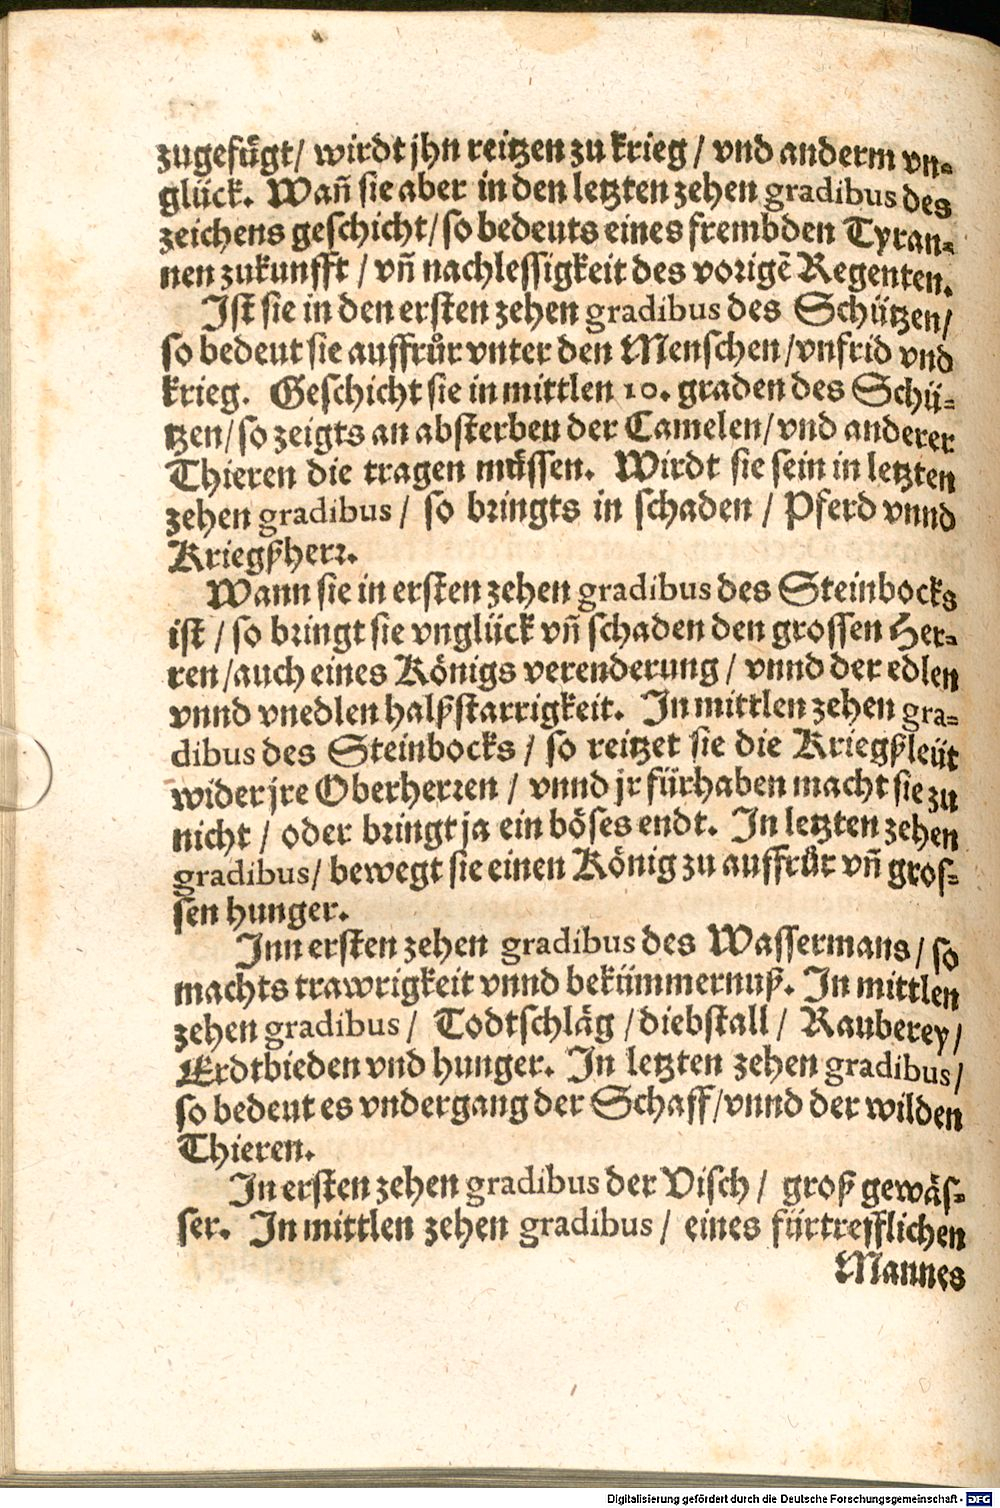 zugefügt/ wirdt jhn reitzen zu krieg / vnd anderm vn-
glück. Wañ sie aber in den letzten zehen gradibus des
zeichens geschicht/ so bedeuts eines frembden Tyran-
nen zukunfft / vñ nachlessigkeit des vorigẽ Regenten.
Ist sie in den ersten zehen gradibus des Schützen/
so bedeut sie auffrůr vnter den Menschen/ vnfrid vnd
krieg. Geschicht sie in mittlen 10. graden des Schü-
tzen/ so zeigts an absterben der Camelen/ vnd anderer
Thieren die tragen müssen. Wirdt sie sein in letzten
zehen gradibus/ so bringts in schaden / Pferd vnnd
Kriegßherr.
Wann sie in ersten zehen gradibus des Steinbocks
ist / so bringt sie vnglück vñ schaden den grossen Her-
ren/ auch eines Königs verenderung / vnnd der edlen
vnnd vnedlen halßstarrigkeit. In mittlen zehen gra-
dibus des Steinbocks / so reitzet sie die Kriegßleüt
wider jre Oberherren / vnnd jr fürhaben macht sie zu
nicht / oder bringt ja ein böses endt. In letzten zehen
gradibus/ bewegt sie einen König zu auffrůr vñ gros-
sen hunger.
Inn ersten zehen gradibus des Wassermans/ so
machts trawrigkeit vnnd bekümmernuß. In mittlen
zehen gradibus/ Todtschläg / diebstall / Rauberey/
Erdtbieden vnd hunger. In letzten zehen gradibus/
so bedeut es vndergang der Schaff/ vnnd der wilden
Thieren.
In ersten zehen gradibus der Visch / groß gewäs-
ser. In mittlen zehen gradibus/ eines fürtrefflichen
Mannes
Digitalisierung gefördert durch die Deutsche Forschungsgemeinschaft - DFG